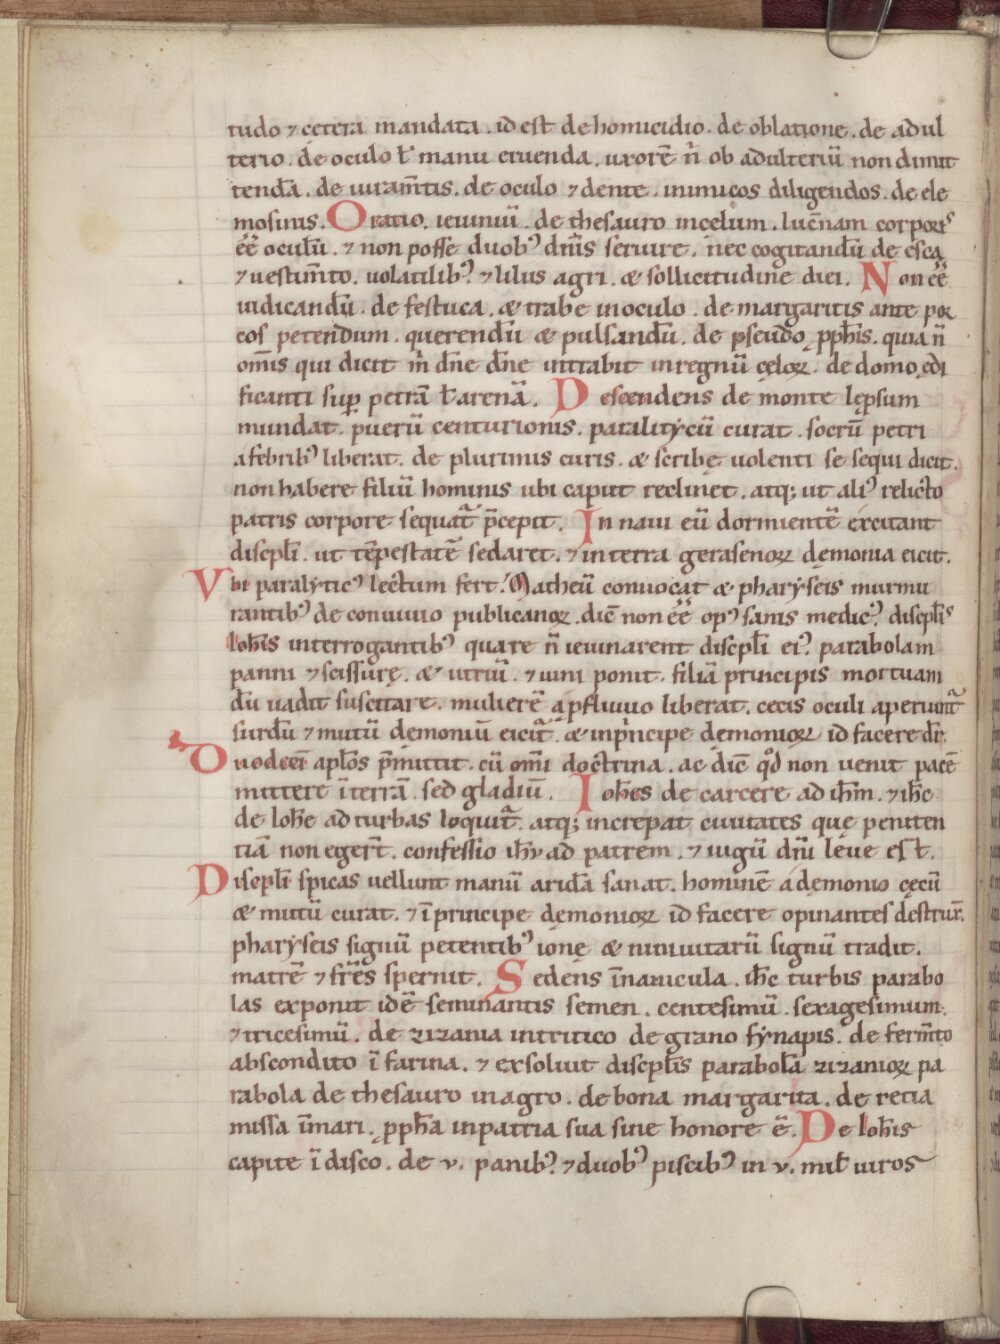 tudo ⁊ cetera mandata . id est de homicidio . de oblatione . de adul
terio . de oculo ł manu eruenda . uxorē n̄ ob adulteriū non dimit
tendā . de iuram̄tis . de oculo ⁊ dente . inimicos diligendos . de ele
mosinis . Oratio . ieiuniū . de thesauro incelum . lucēnam corporis
eē oculū . ⁊ non posse duobꝰ dn̄is seruire . nec cogitandū de esca
⁊ uestim̄to . uolatilibꝰ ⁊ lilus agri . & sollicitudine diei . Non eē
iudicandū . de festuca . & trabe inoculo . de margaritis ante por
cos petendum . querendū & pulsandū . de pseudo ꝓph̄is . quia n̄
om̄is qui dicit m̄ dn̄e dn̄e intrabit inregnū cęloꝝ . de domo ędi
ficanti suꝑ petrā ł arenā . Descendens de monte lęprsum
mundat . puerū centurionis . paralitycū curat . socrū petri
afebribꝰ liberat . de plurimis curis . & scribę uolenti se sequi dicit .
non habere filiū hominis ubi caput reclinet . atq; ut aliꝰ relicto
patris corpore sequat̄ p̄cepit . In naui eū dormientē excitant
discpl̄i . ut tēpestatē sedaret . ⁊ in terra gerasenoꝝ dęmonia eicit .
Vbi paralyticꝰ lectum fert . Matheū conuocat & pharyseis murmu
rantibꝰ de conuiuio publicanoꝝ . dic̄ non eē opꝰ sanis medicꝰ . discpl̄is
Ioh̄is interrogantibꝰ quare n̄ ieiunarent discpl̄i eiꝰ . parabolam
panni ⁊ scissurę . & utriū . ⁊ uini ponit . filiā principis mortuam
dū uadit suscitare . mulierē a ꝓfluuio liberat . cecis oculi aperiunt̄
surdū ⁊ mutū demoniū eicit̄ . & inp̄rincipe dęmonioꝝ id facere dr̄ .
Duodecī apl̄os p̄mittit . cū om̄i doctrina . ac dic̄ qd̄ non uenit pacē
mittere ī terrā . sed gladiū . Ioh̄es de carcere ad ih̄m . ⁊ ih̄c
de Ioh̄e ad turbas loquit̄ . atq; increpat ciuitates que peniten
tiā non eger̄t . confessio ih̄y ad patrem . ⁊ iugū dn̄i leue est .
Discpl̄i spicas uellunt manū aridā sanat . hominē a dęmonio cęcū
& mutū curat . ⁊ ī principe dęmonioꝝ id facere opinantes destrux̄ .
pharyseis signū petentibꝰ ionę & niniuitarū signū tradit .
matrē ⁊ fr̄es spernit . Sedens īnauicula . ih̄c turbis parabo
las exponit idē seminantis semen . centesimū . sexagesimum .
⁊ tricesimū . de zizania intritico de grano synapis . de ferm̄to
abscondito ī farina . ⁊ exsoluit discpl̄is parabolā zizanioꝝ pa
rabola de thesauro inagro . de bona margarita . de retia
missa īmari . ꝓph̄a inpatria sua sine honore ē . De Ioh̄is
capite ī disco . de v . panibꝰ . ⁊ duobꝰ piscibꝰ in v . mil̄ uiros